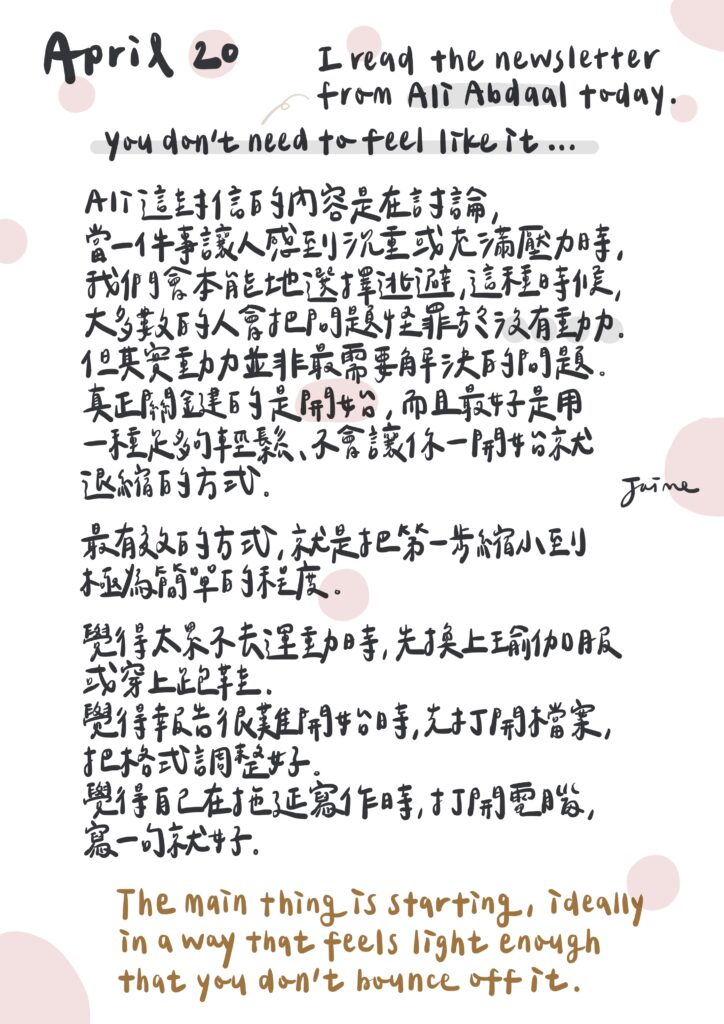 April 20
I read the newsletter
from Ali Abdaal today.
you don't need to feel like it...
Ali 這封信的內容是在討論,
當一件事讓人感到沉重或充滿壓力時,
我們會本能地選擇逃避,這種時候,
大多數的人會把問題怪罪於沒有動力.
但其實動力並非最需要解決的問題.
真正關鍵的是開始,而且最好是用
一種足夠輕鬆、不會讓你一開始就
退縮的方式.
Jaime
最有效的方式,就是把第一步縮小到
極為簡單的程度.
覺得太累不去運動時,先換上瑜伽服
或穿上跑鞋.
覺得報告很難開始時,先打開檔案,
把格式調整好.
覺得自己在拖延寫作時,打開電腦,
寫一句就好.
The main thing is starting, ideally
in a way that feels light enough
that you don't bounce off it.